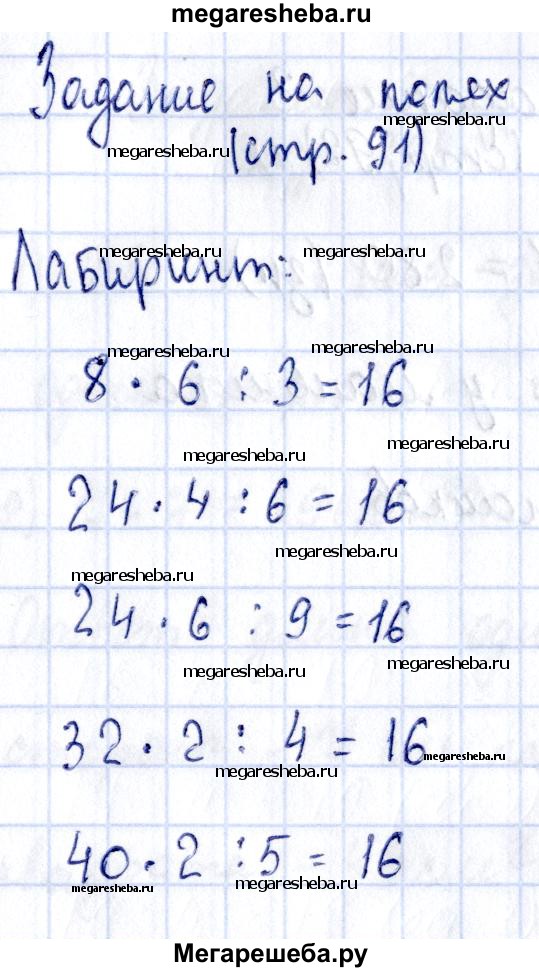 megaresheba.ru
Задание на полях
megaresheba.ru
megaresheba.ru
(стр. 91)
Лабиринт:
megaresheba.ru
megaresheba.ru
megaresheba.ru
megaresheba.ru
8 · 6 : 3 = 16
megaresheba.ru
megaresheba.ru
24 · 4 : 6 = 16
megaresheba.ru
megaresheba.ru
24 · 6 : 9 = 16
megaresheba.ru
megaresheba.ru
32 · 2 : 4 = 16
megaresheba.ru
megaresheba.ru
40 · 2 : 5 = 16
megaresheba.ru
megaresheba.ru
Мегарешеба.ру